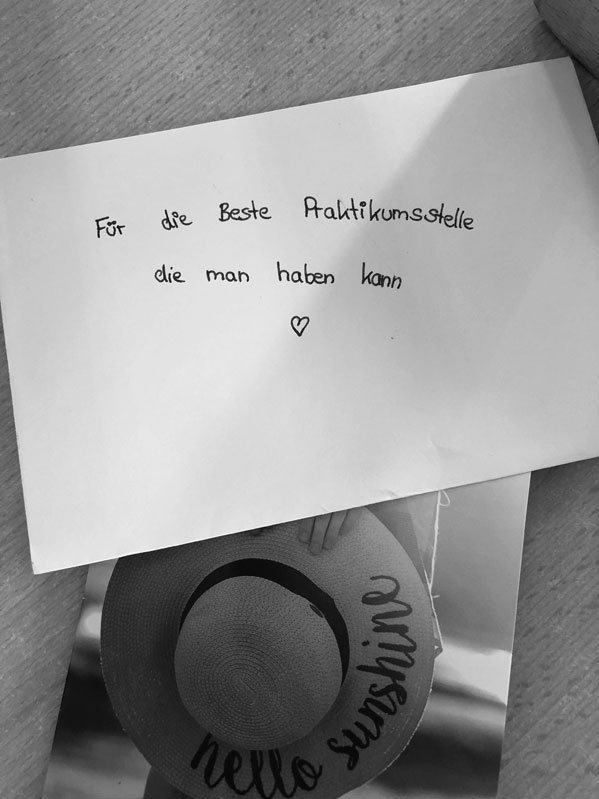 Für die Beste Praktikumsstelle
die man haben kann
♡
hello sunshine